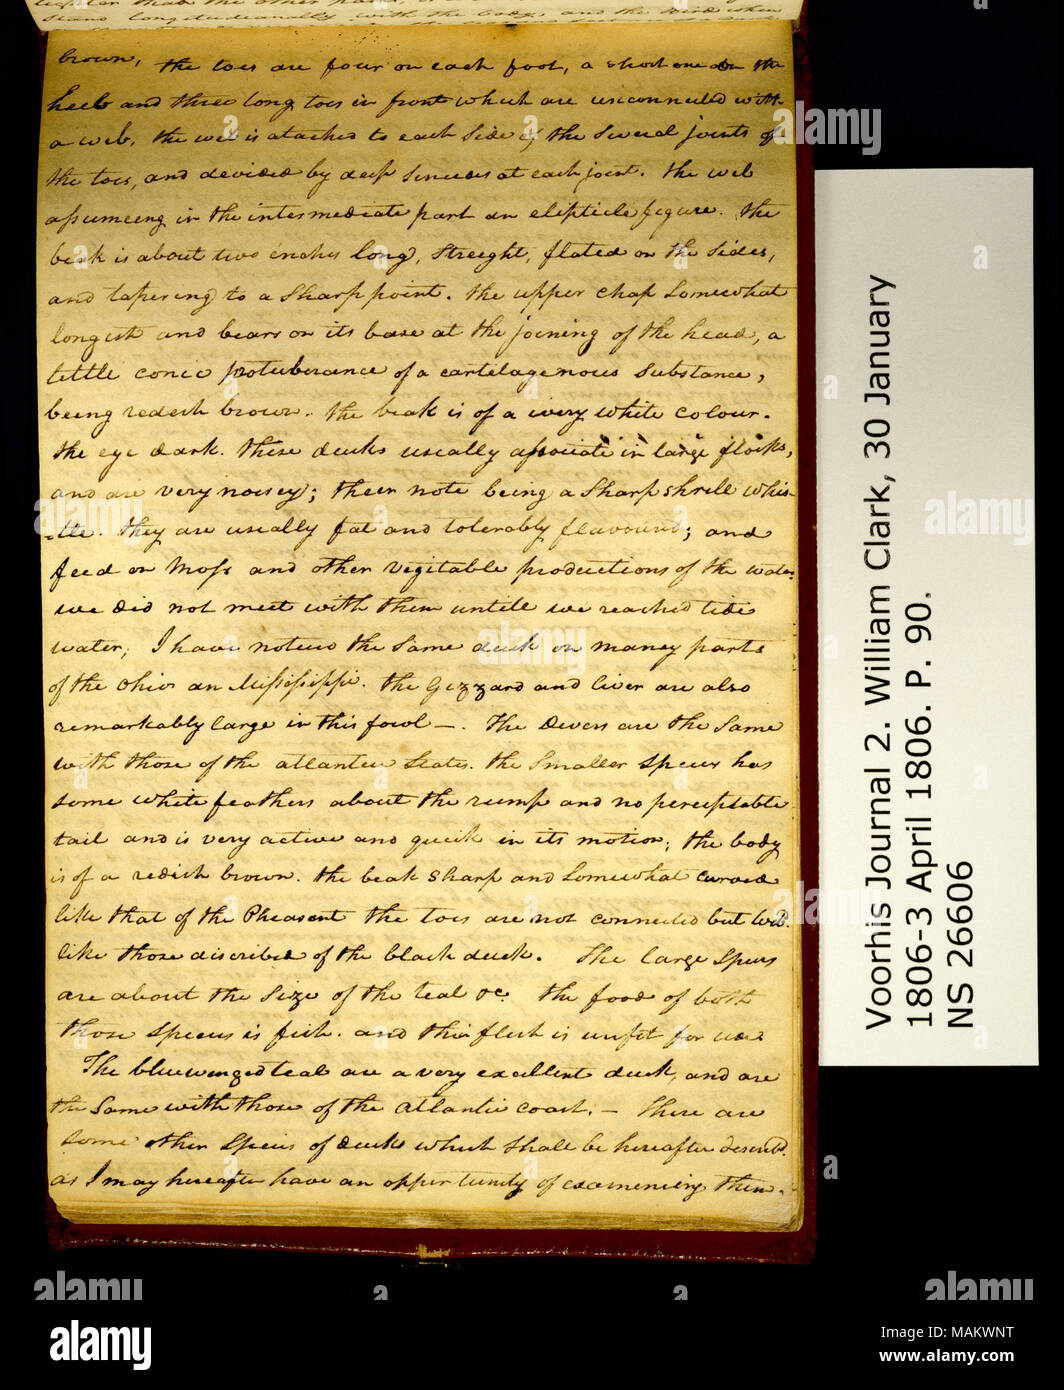 brown, the toes are four on each foot, a short one on the
heel and three long toes in front which are unconnected with
a web. the web is atached to each Side of the Several joints of
the toes, and devided by deep Sinuses at each joint. the web
assumeing in the intermediate part an elipticle figure. the
beak is about two inches long, Streight, flated on the Sides,
and tapering to a Sharp point. the upper chap Somewhat
longest and bears on its base at the joining of the head, a
little conic protuberance of a cartelagenous Substance,
being redish brown. the beak is of a ivery white colour.
the eye dark. these ducks usually associate in large flocks,
and are very noisey; their note being a Sharp shrill whis-
-tle. they are usually fat and tolerably flavoured; and
feed on Moss and other vegitable productions of the water.
we did not meet with them untill we reached tide
water, I have noticed the Same duck on maney parts
of the Ohio an Mississippi. the Gizzard and liver are also
remarkably large in this fowl —. The Divers are the Same
with those of the atlantic States. the Smaller Species has
some white feathers about the rump and no perceptable
tail and is very active and quick in its motion; the body
is of a redish brown. the beak sharp and Somewhat curved
like that of the Pheasent the toes are not connected but webd.
like those discribed of the black duck. The large Species
are about the Size of the teal &c. the food of both
those Species is fish. and their flesh is unfit for use
The bluewinged teal are a very excellent duck, and are
the Same with those of the atlantic coast. — There are
some other Species of ducks which Shall be hereafter discribd.
as I may hereafter have an opportunity of examining them.
Voorhis Journal 2. William Clark, 30 January
1806-3 April 1806. P. 90.
NS 26606
alamy
Image ID: MAKWNT
www.alamy.com